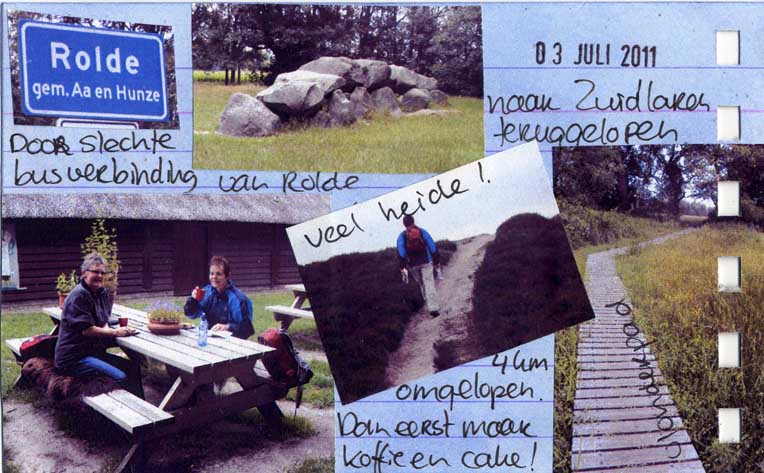 Rolde
gem. Aa en Hunze
03 JULI 2011
Door slechte
busverbinding van Rolde
naar Zuidlaren
teruggelopen
veel heide!
4 km
omgelopen.
Dan eerst maar
koffie en cake!
vlonderpad